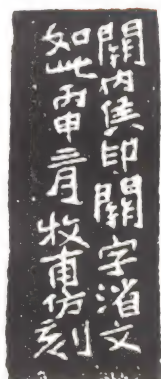 關內侯印關字渻文
如此丙申三月牧甫仿刻